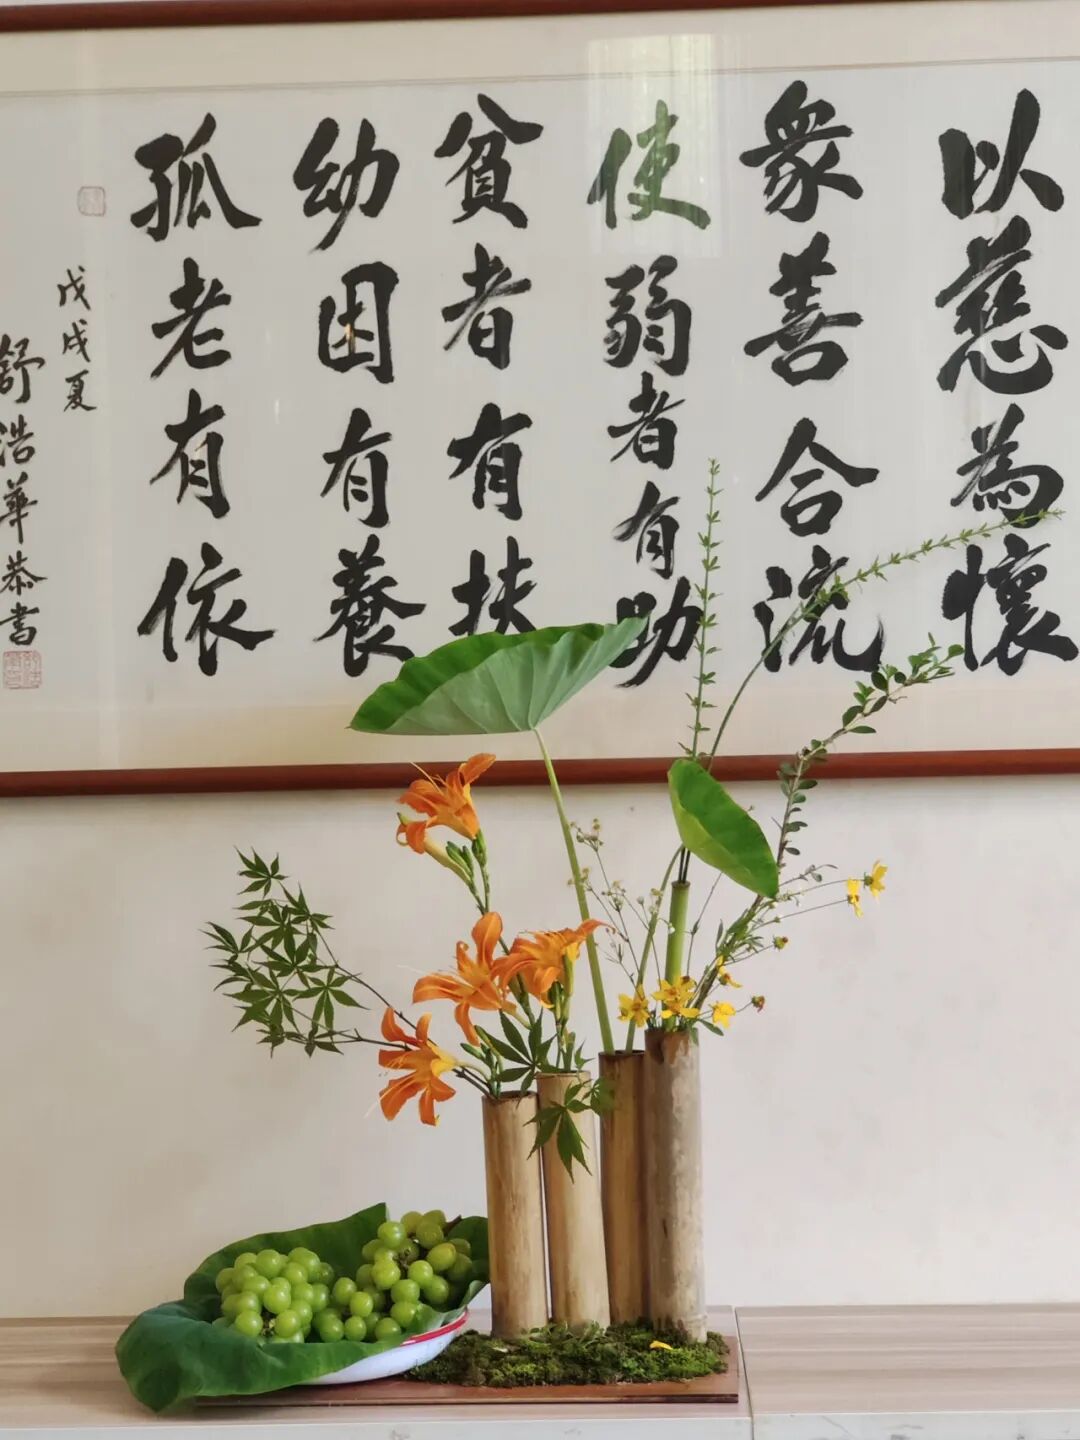 以慈為懷
衆善合流
使弱者有助
貧者有扶
幼困有養
孤老有依
戊戌夏
舒浩華恭书